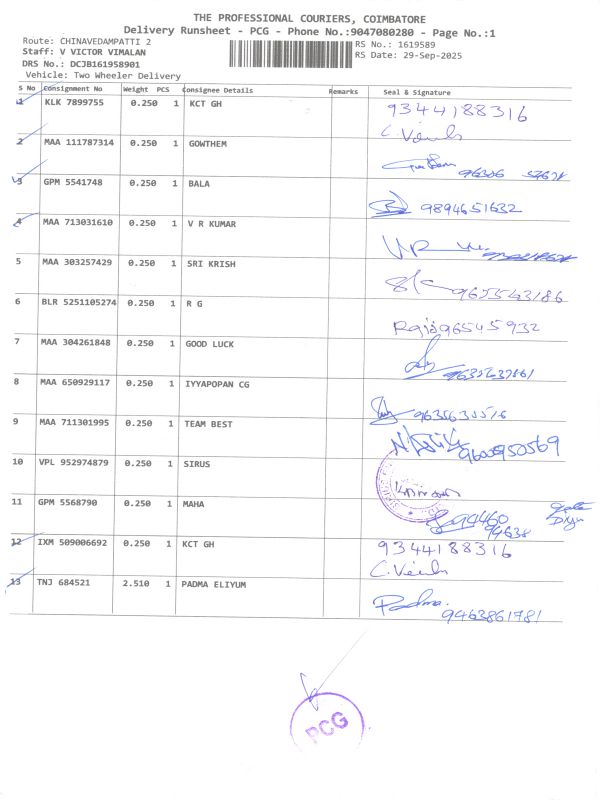 THE PROFESSIONAL COURIERS, COIMBATORE
Delivery Runsheet - PCG - Phone No.:9047080280 - Page No.:1
Route: CHINAVEDAMPATTI 2
RS No.: 1619589
Staff: V VICTOR VIMALAN
RS Date: 29-Sep-2025
DRS No.: DCJB161958901
Vehicle: Two Wheeler Delivery
S No Consignment No Weight PCS Consignee Details Remarks Seal & Signature
1 KLK 7899755 0.250 1 KCT GH 9344188316
2 MAA 111787314 0.250 1 GOWTHEM
3 GPM 5541748 0.250 1 BALA 9894651632
4 MAA 713031610 0.250 1 V R KUMAR
5 MAA 303257429 0.250 1 SRI KRISH
6 BLR 5251105274 0.250 1 R G
7 MAA 304261848 0.250 1 GOOD LUCK
8 MAA 650929117 0.250 1 IYYAPOPAN CG
9 MAA 711301995 0.250 1 TEAM BEST
10 VPL 952974879 0.250 1 SIRUS
11 GPM 5568790 0.250 1 MAHA
12 IXM 509006692 0.250 1 KCT GH 9344188316
13 TNJ 684521 2.510 1 PADMA ELIYUM
Padma.
9463861781
PCG